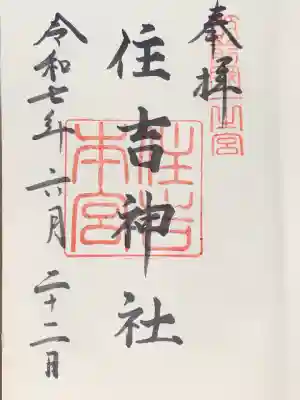 奉拝
住吉神社
住吉
本宮
令和七年 六月 二十二日